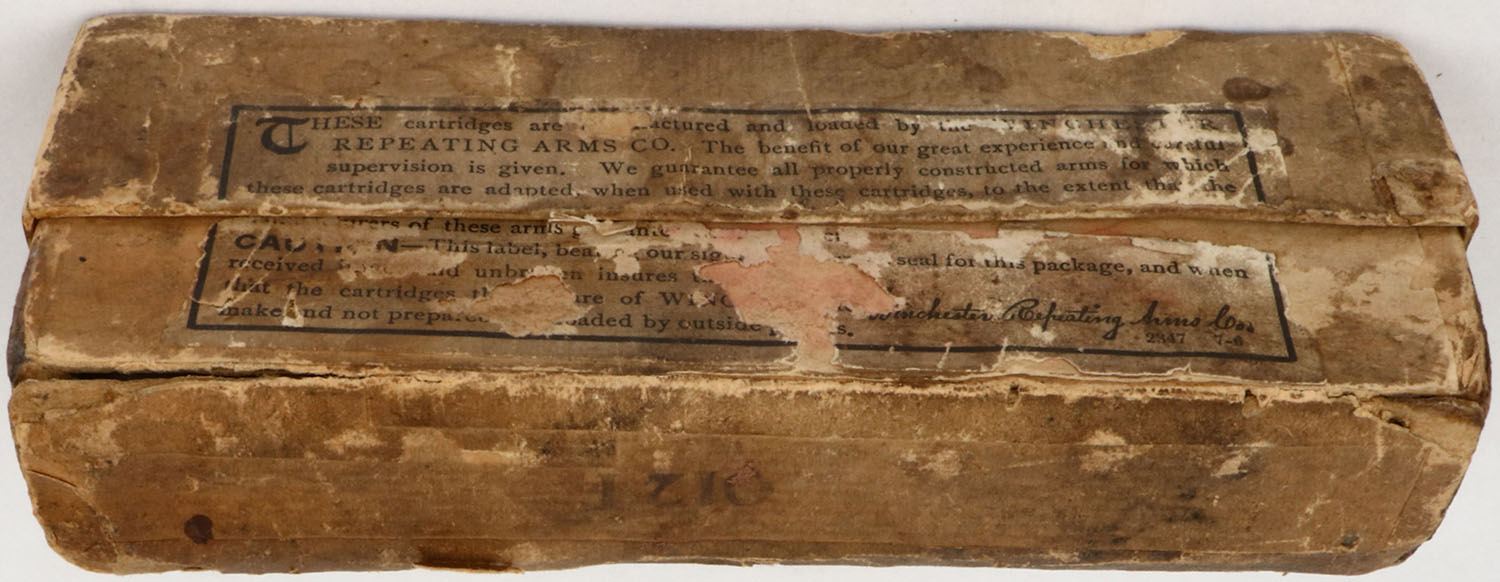 THESE cartridges are actured and loaded by the WINCHESTER
REPEATING ARMS CO. The benefit of our great experience and careful
supervision is given. We guarantee all properly constructed arms for which
these cartridges are adapted, when used with these cartridges, to the extent that the
urers of these arms
CAUTION—This label, bea our sig seal for this package, and when
received and unbroken insures
that the cartridges are of WINC
make and not prepare oaded by outside s. Winchester Repeating Arms Co.
2347 7-6